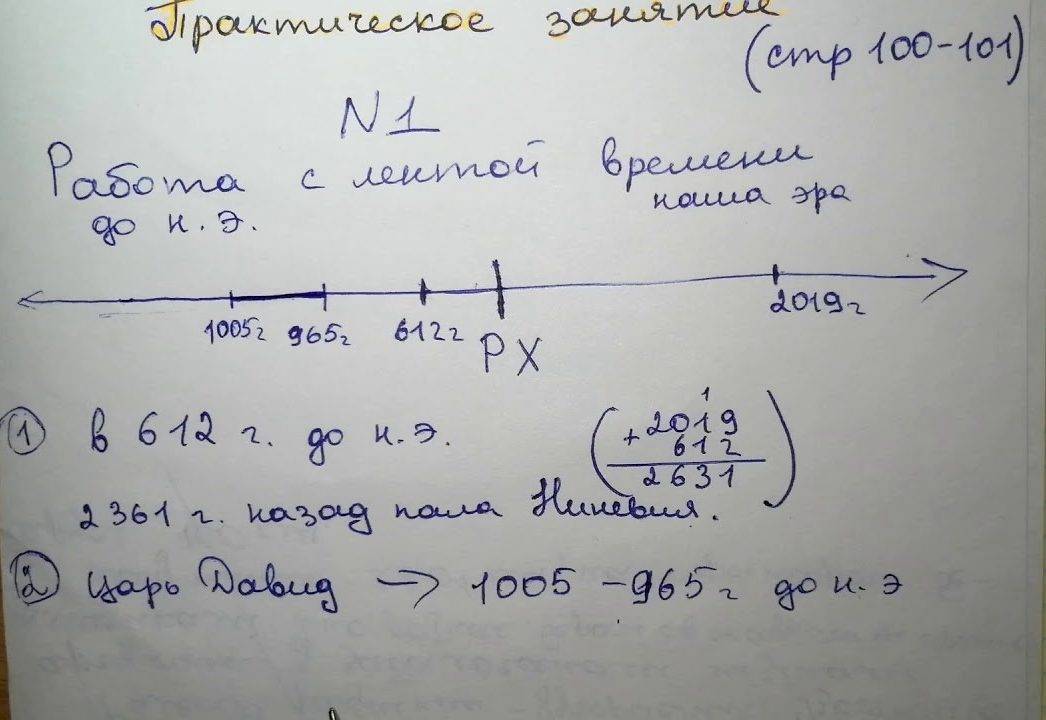 Практическое занятие
(стр 100-101)
N1
Работа с лентой времени
до н.э. наша эра
1005г 965г 612г РХ 2019г
1 в 612 г. до н.э.
1
+2019
612
2631
2361 г. назад пала Ниневия.
2 царь Давид → 1005-965г до н.э